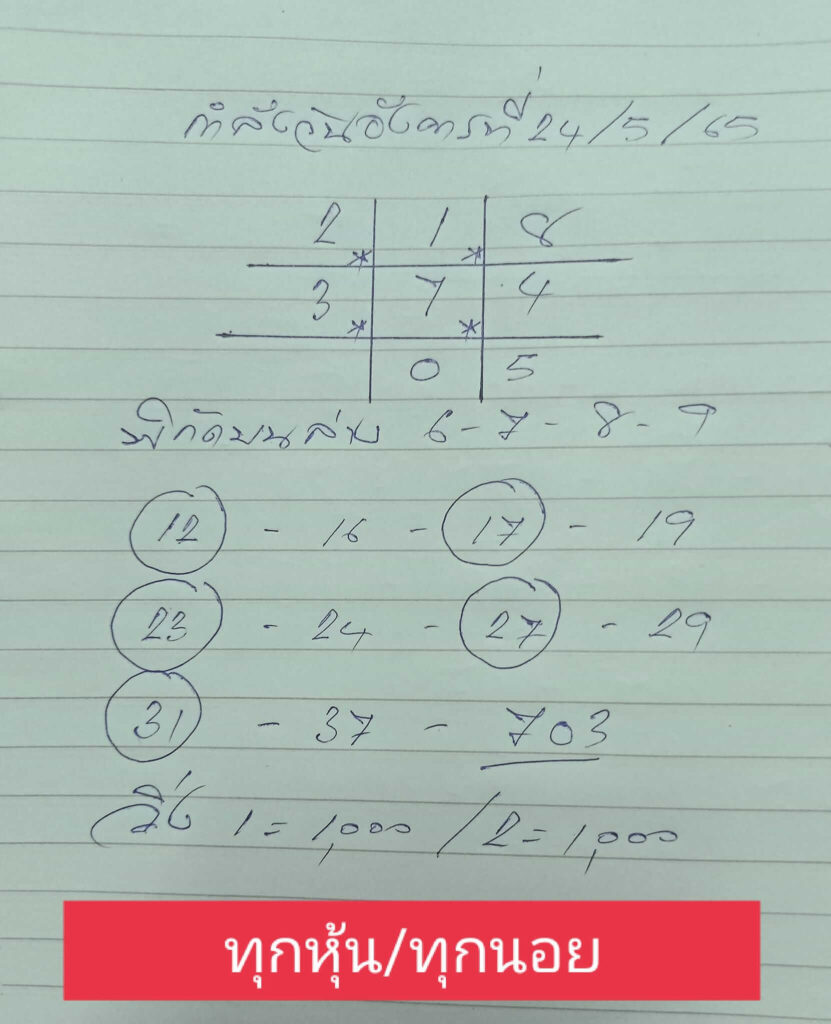 กำลังวันอังคารที่ 24/5/65
2 1 8
* *
3 7 4
* *
0 5
พิกัดบนล่าง 6-7-8-9
12 - 16 - 17 - 19
23 - 24 - 27 - 29
31 - 37 - 703
วิ่ง 1 = 1,000 / 2 = 1,000
ทุกหุ้น/ทุกนอย